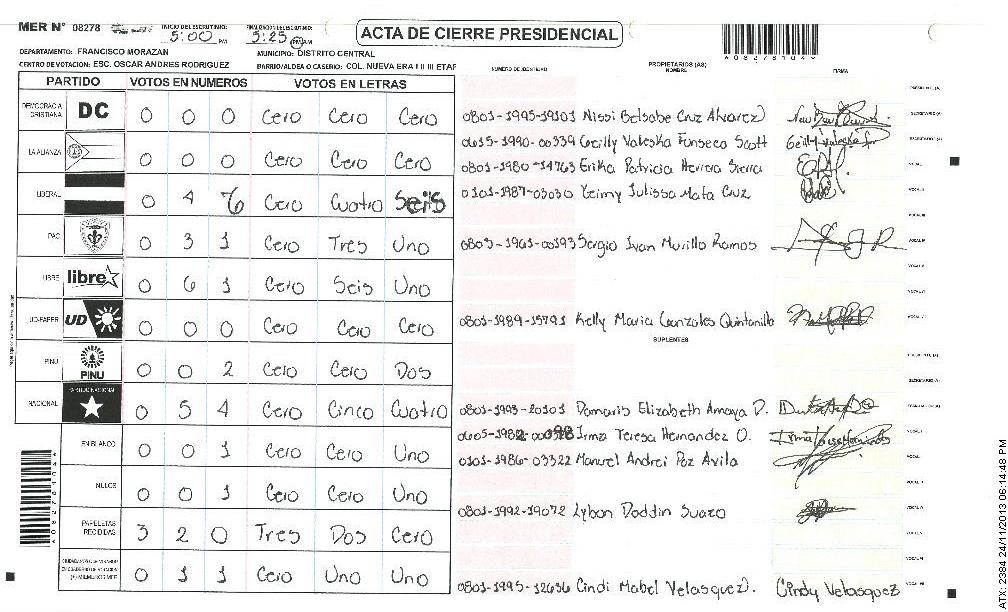 MER N° 08278 INICIO DEL ESCRUTINIO: 5:00 PM FINALIZACION DEL ESCRUTINIO: 5:25 PM AM
ACTA DE CIERRE PRESIDENCIAL
DEPARTAMENTO: FRANCISCO MORAZAN MUNICIPIO: DISTRITO CENTRAL
CENTRO DE VOTACION: ESC. OSCAR ANDRES RODRIGUEZ BARRIO/ALDEA O CASERIO: COL. NUEVA ERA I II III ETAP
PARTIDO VOTOS EN NUMEROS VOTOS EN LETRAS
NUMERO DE IDENTIDAD PROPIETARIOS (AS) NOMBRE FIRMA
DEMOCRACIA CRISTIANA DC 0 0 0 Cero Cero Cero
LA ALIANZA 0 0 0 Cero Cero Cero
LIBERAL 0 4 6 Cero Cuatro Seis
PAC 0 3 1 Cero Tres Uno
LIBRE libre 0 6 1 Cero Seis Uno
UD-FAPER UD 0 0 0 Cero Cero Cero
PINU PINU 0 0 2 Cero Cero Dos
NACIONAL PARTIDO NACIONAL 0 5 4 Cero Cinco Cuatro
EN BLANCO 0 0 1 Cero Cero Uno
NULOS 0 0 1 Cero Cero Uno
PAPELETAS RECIBIDAS 3 2 0 Tres Dos Cero
CIUDADANOS QUE VOTARON 0 1 1 Cero Uno Uno
0801-1995-19101 Nissi Belsabe Cruz Alvarez
0615-1990-00339 Geilly Valeska Fonseca Scott
0801-1980-14763 Erika Patricia Herrera Sierra
0101-1987-03030 Yeimy Julissa Mata Cruz
0805-1961-00193 Sergio Ivan Murillo Ramos
0801-1989-15791 Kelly Maria Gonzales Quintanilla
SUPLENTES
0801-1993-20101 Damaris Elizabeth Amaya D.
Irma Teresa Hernandez O.
0101-1986-03322 Manuel Andrei Paz Avila
0801-1992-19072 Lyban Doddin Suazo
0801-1995-12636 Cindi Mabel Velasquez Cindy Velasquez
*08278104*
ATX: 2384 24/11/2013 06:14:48 PM